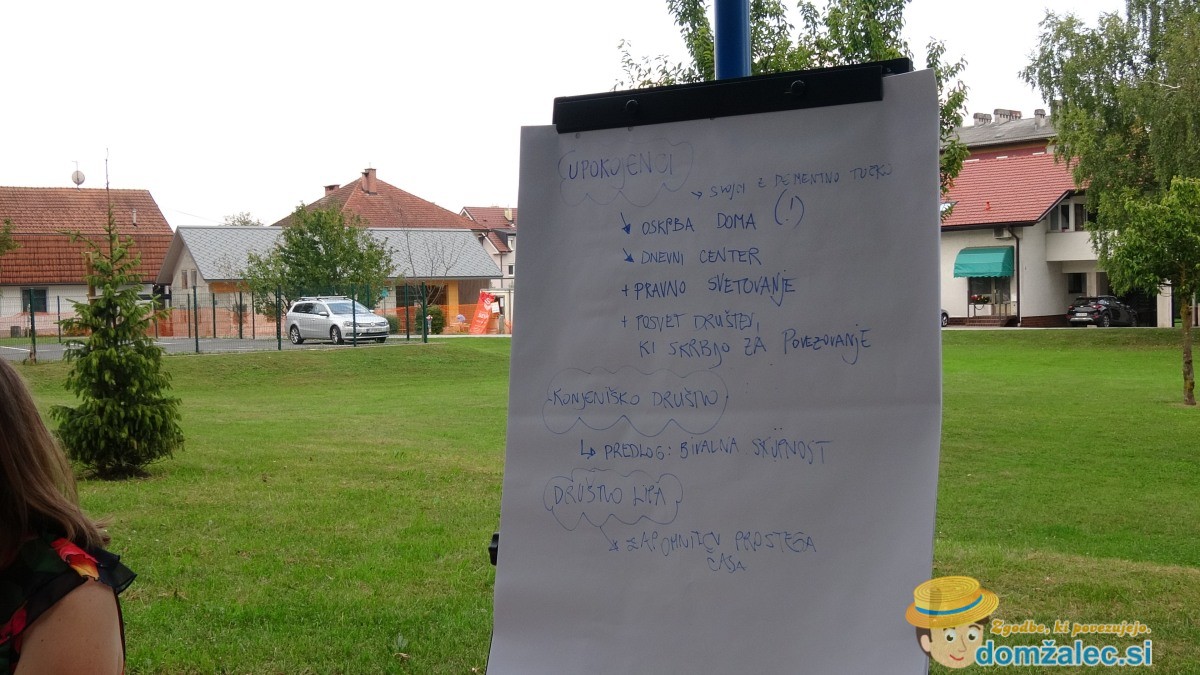 UPOKOJENCI
→ SVOJCI Z DEMENTNO
↘ OSKRBA DOMA (!)
↘ DNEVNI CENTER
+ PRAVNO SVETOVANJE
+ POSVET DRUŠTEV,
KI SKRBIJO ZA POVEZOVANJE
KONJENIŠKO DRUŠTVO
↳ PREDLOG: BIVALNA SKUPNOST
DRUŠTVO LIPA
PROSTEGA
ČASA
Zgodbe, ki povezujejo.
domžalec.si